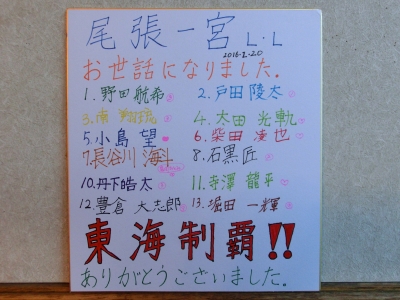 尾張一宮 L.L
2016-2-20
お世話になりました。
1.野田 航希 2.戸田 陵太
3.南 4.太田 光軌
5.小島 望 6.柴田 凌也
7.長谷川 海斗 8.石黒 匠
10.丹下 皓太 11.寺澤 龍平
12.豊倉 大志郎 13.堀田 一輝
東海制覇!!
ありがとうございました。